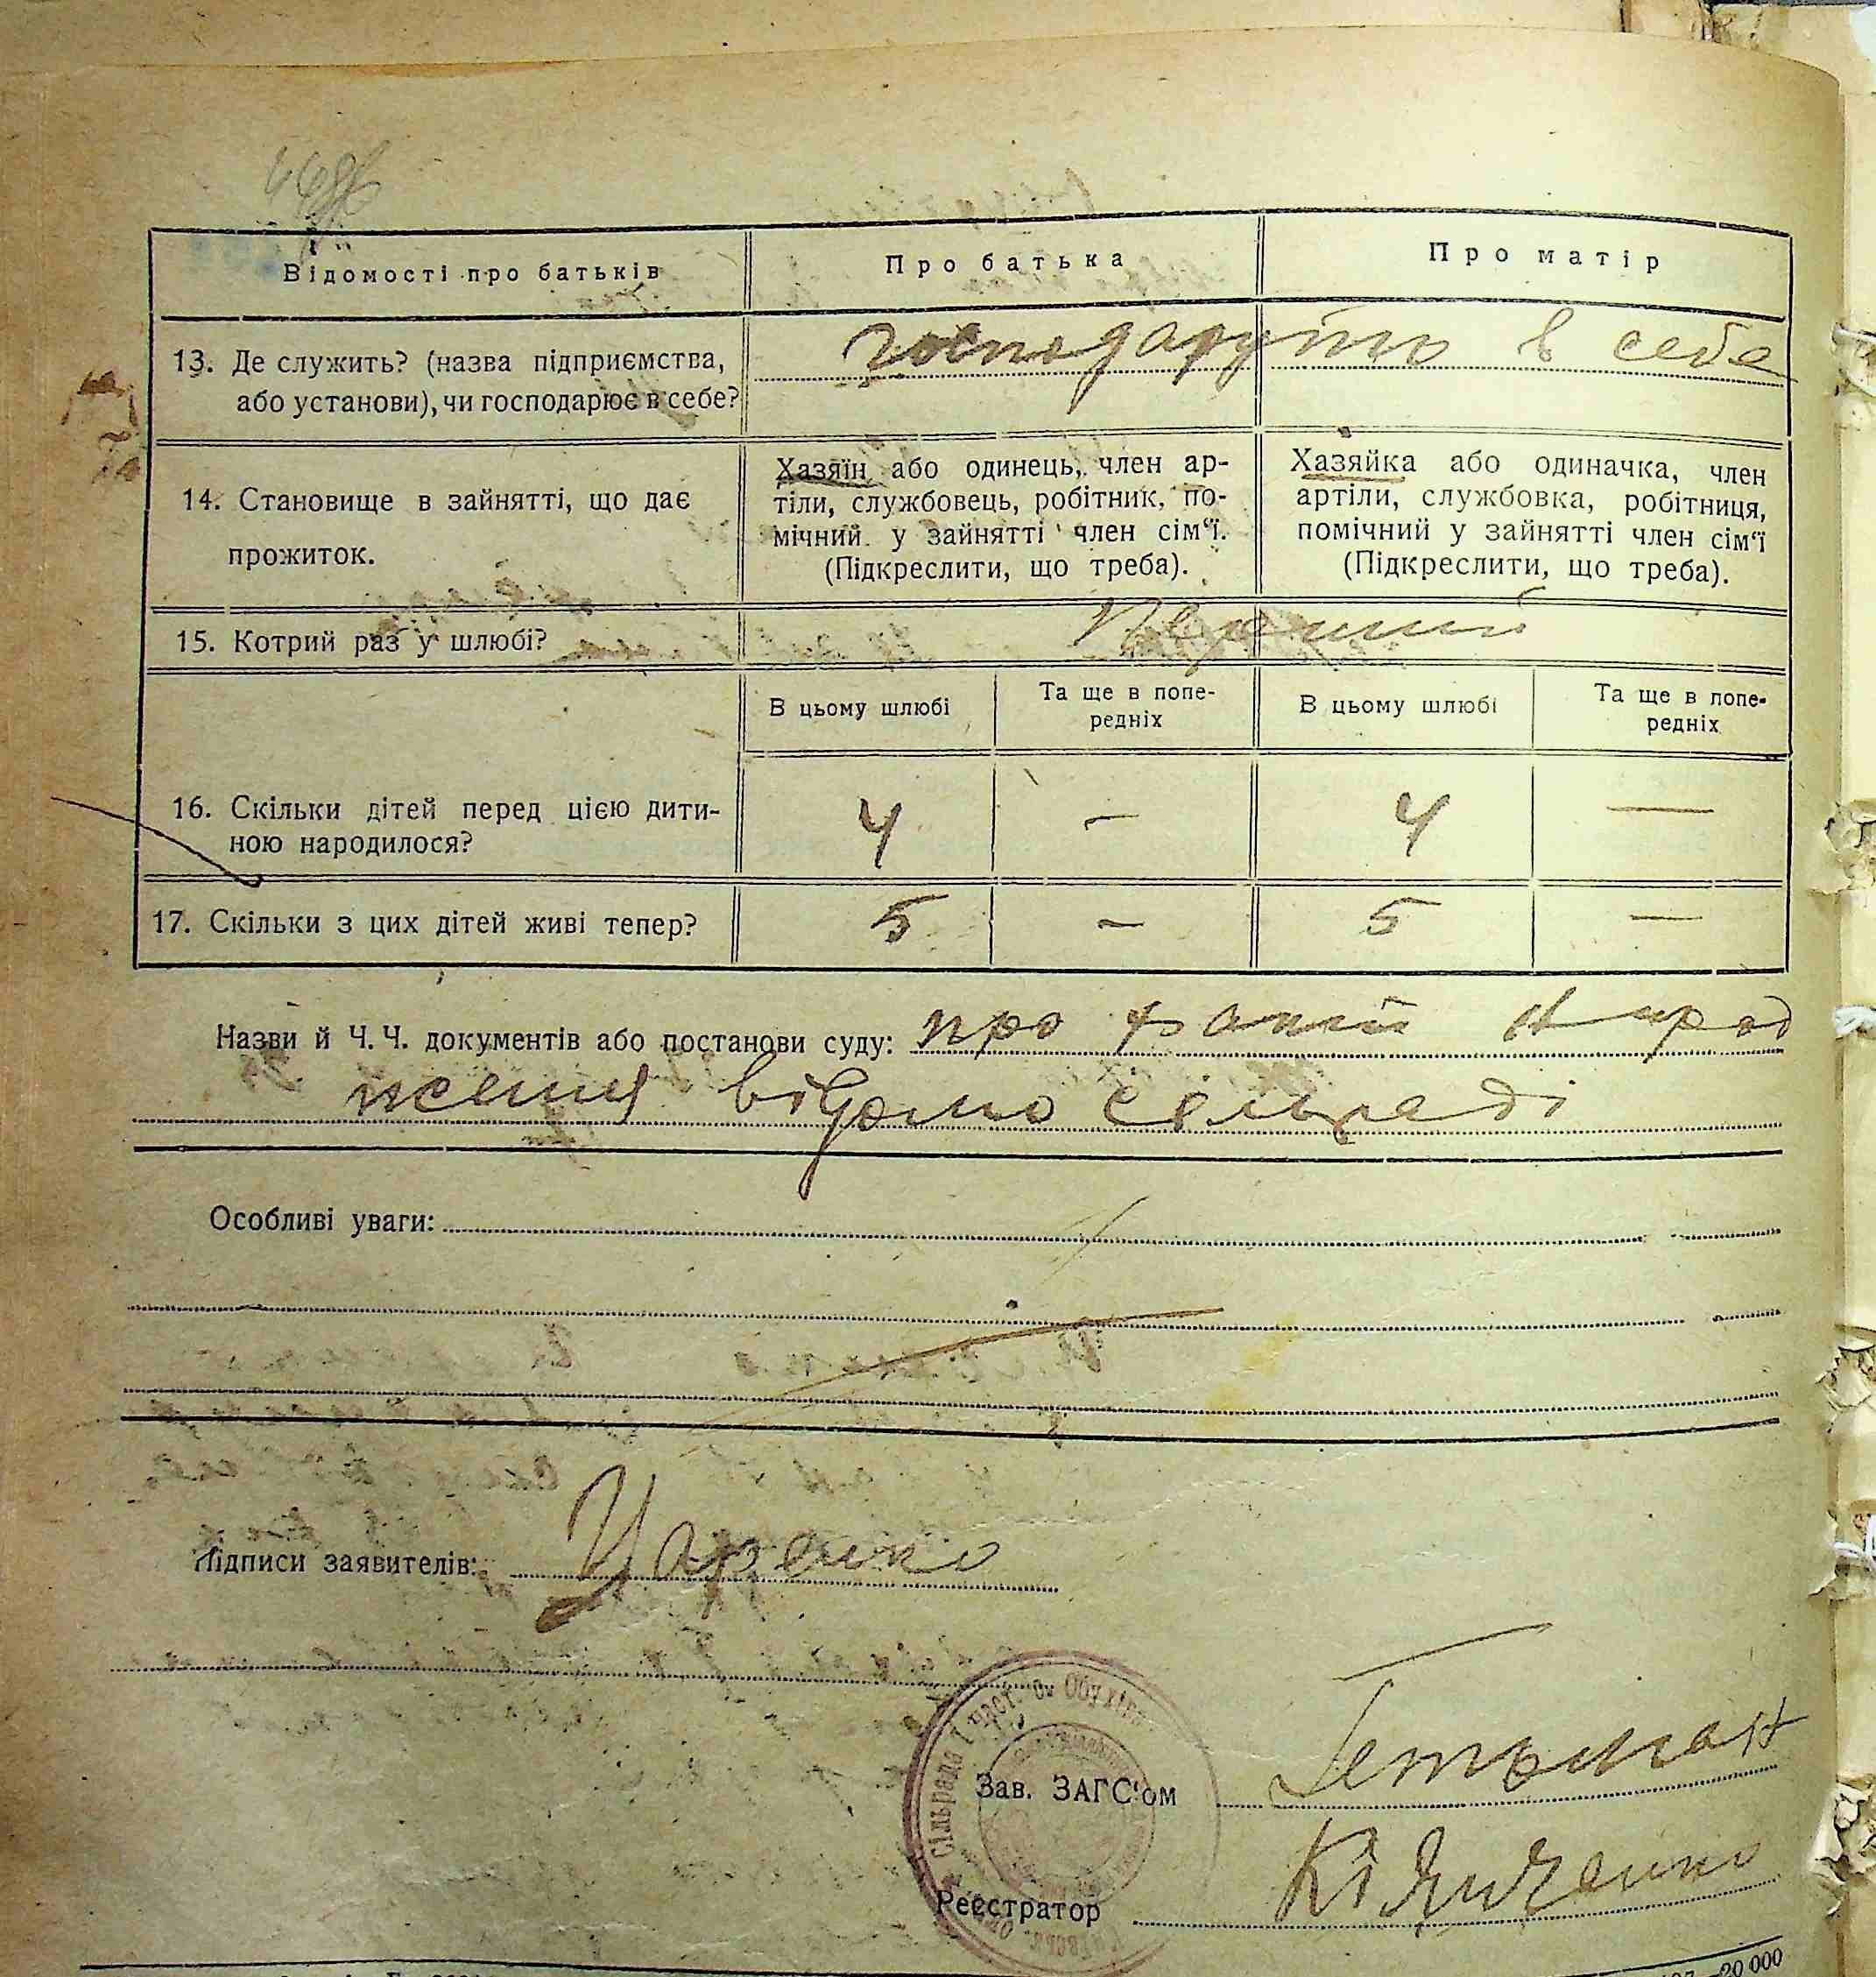 Відомості про батьків
Про батька
Про матір
13. Де служить? (назва підприємства,
або установи), чи господарює в себе?
господарують в себе
14. Становище в зайнятті, що дає
прожиток.
Хазяїн або одинець, член ар-
тіли, службовець, робітник, по-
мічний у зайнятті член сім‘ї.
(Підкреслити, що треба).
Хазяйка або одиначка, член
артіли, службовка, робітниця,
помічний у зайнятті член сім‘ї
(Підкреслити, що треба).
15. Котрий раз у шлюбі?
Перший
В цьому шлюбі
Та ще в попе-
редніх
В цьому шлюбі
Та ще в попе-
редніх
16. Скільки дітей перед цією дити-
ною народилося?
4 — 4 —
17. Скільки з цих дітей живі тепер?
5 — 5 —
Назви й Ч. Ч. документів або постанови суду: про факт
ження відомо сільраді
Особливі уваги:
Підписи заявителів: Царенко
Сільрада І част. с. Обухів
Зав. ЗАГС‘ом Гетьман
Реєстратор
20 000